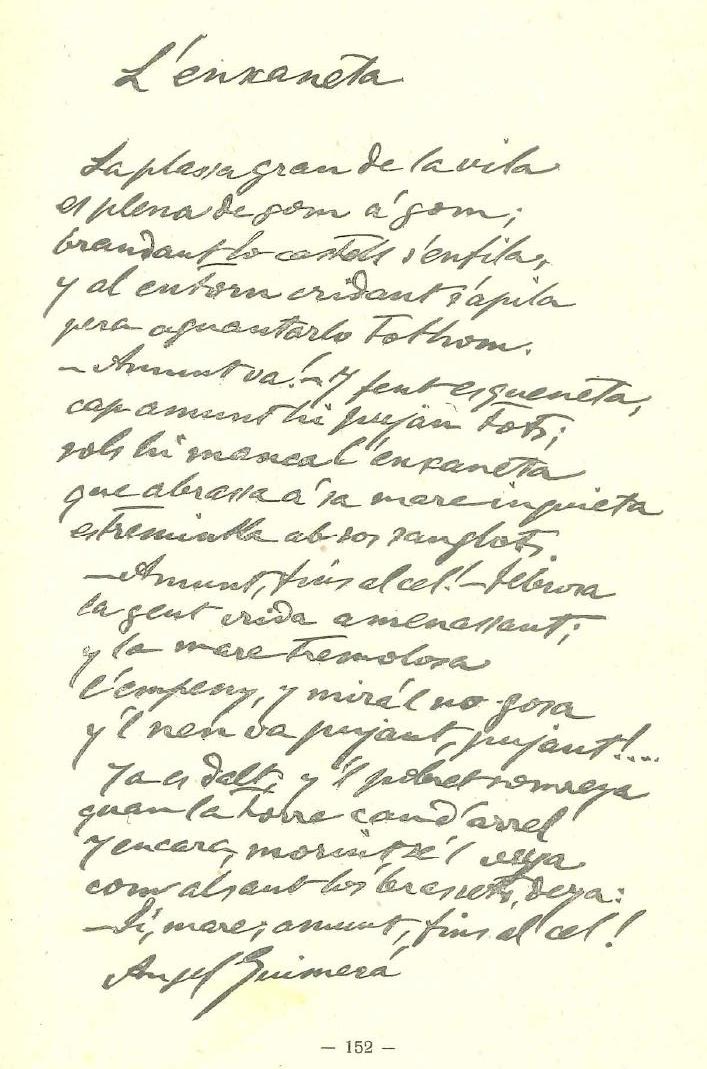 L'enxaneta
La plassa gran de la vila
es plena de gom á gom;
brandant lo castell s'enfila,
y al entorn cridant s'apila
pera aguantarlo tothom.
—Amunt va!—Y fent esqueneta,
cap amunt hi pujan tots;
sols hi manca l'enxaneta
que abrassa á sa mare inquieta
estremintla ab sos sanglots.
—Amunt, fins al cel!—febrosa
la gent crida amenassant;
y la mare tremolosa
l'empeny, y mirá'l no gosa
y'l nen va pujant, pujant!....
Ya es dalt, y'l pobret somreya
quan la torre cau d'arrel
Y encara, morintse'l veya
com alsant los brassets, deya:
—Sí, mare, amunt, fins al cel!
Angel Guimerá
— 152 —